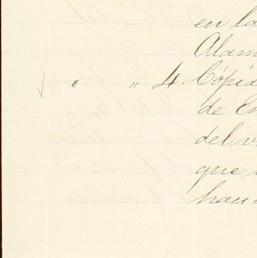 en la
Alam
" " 4. Cópia
de Co
del v
que
hac